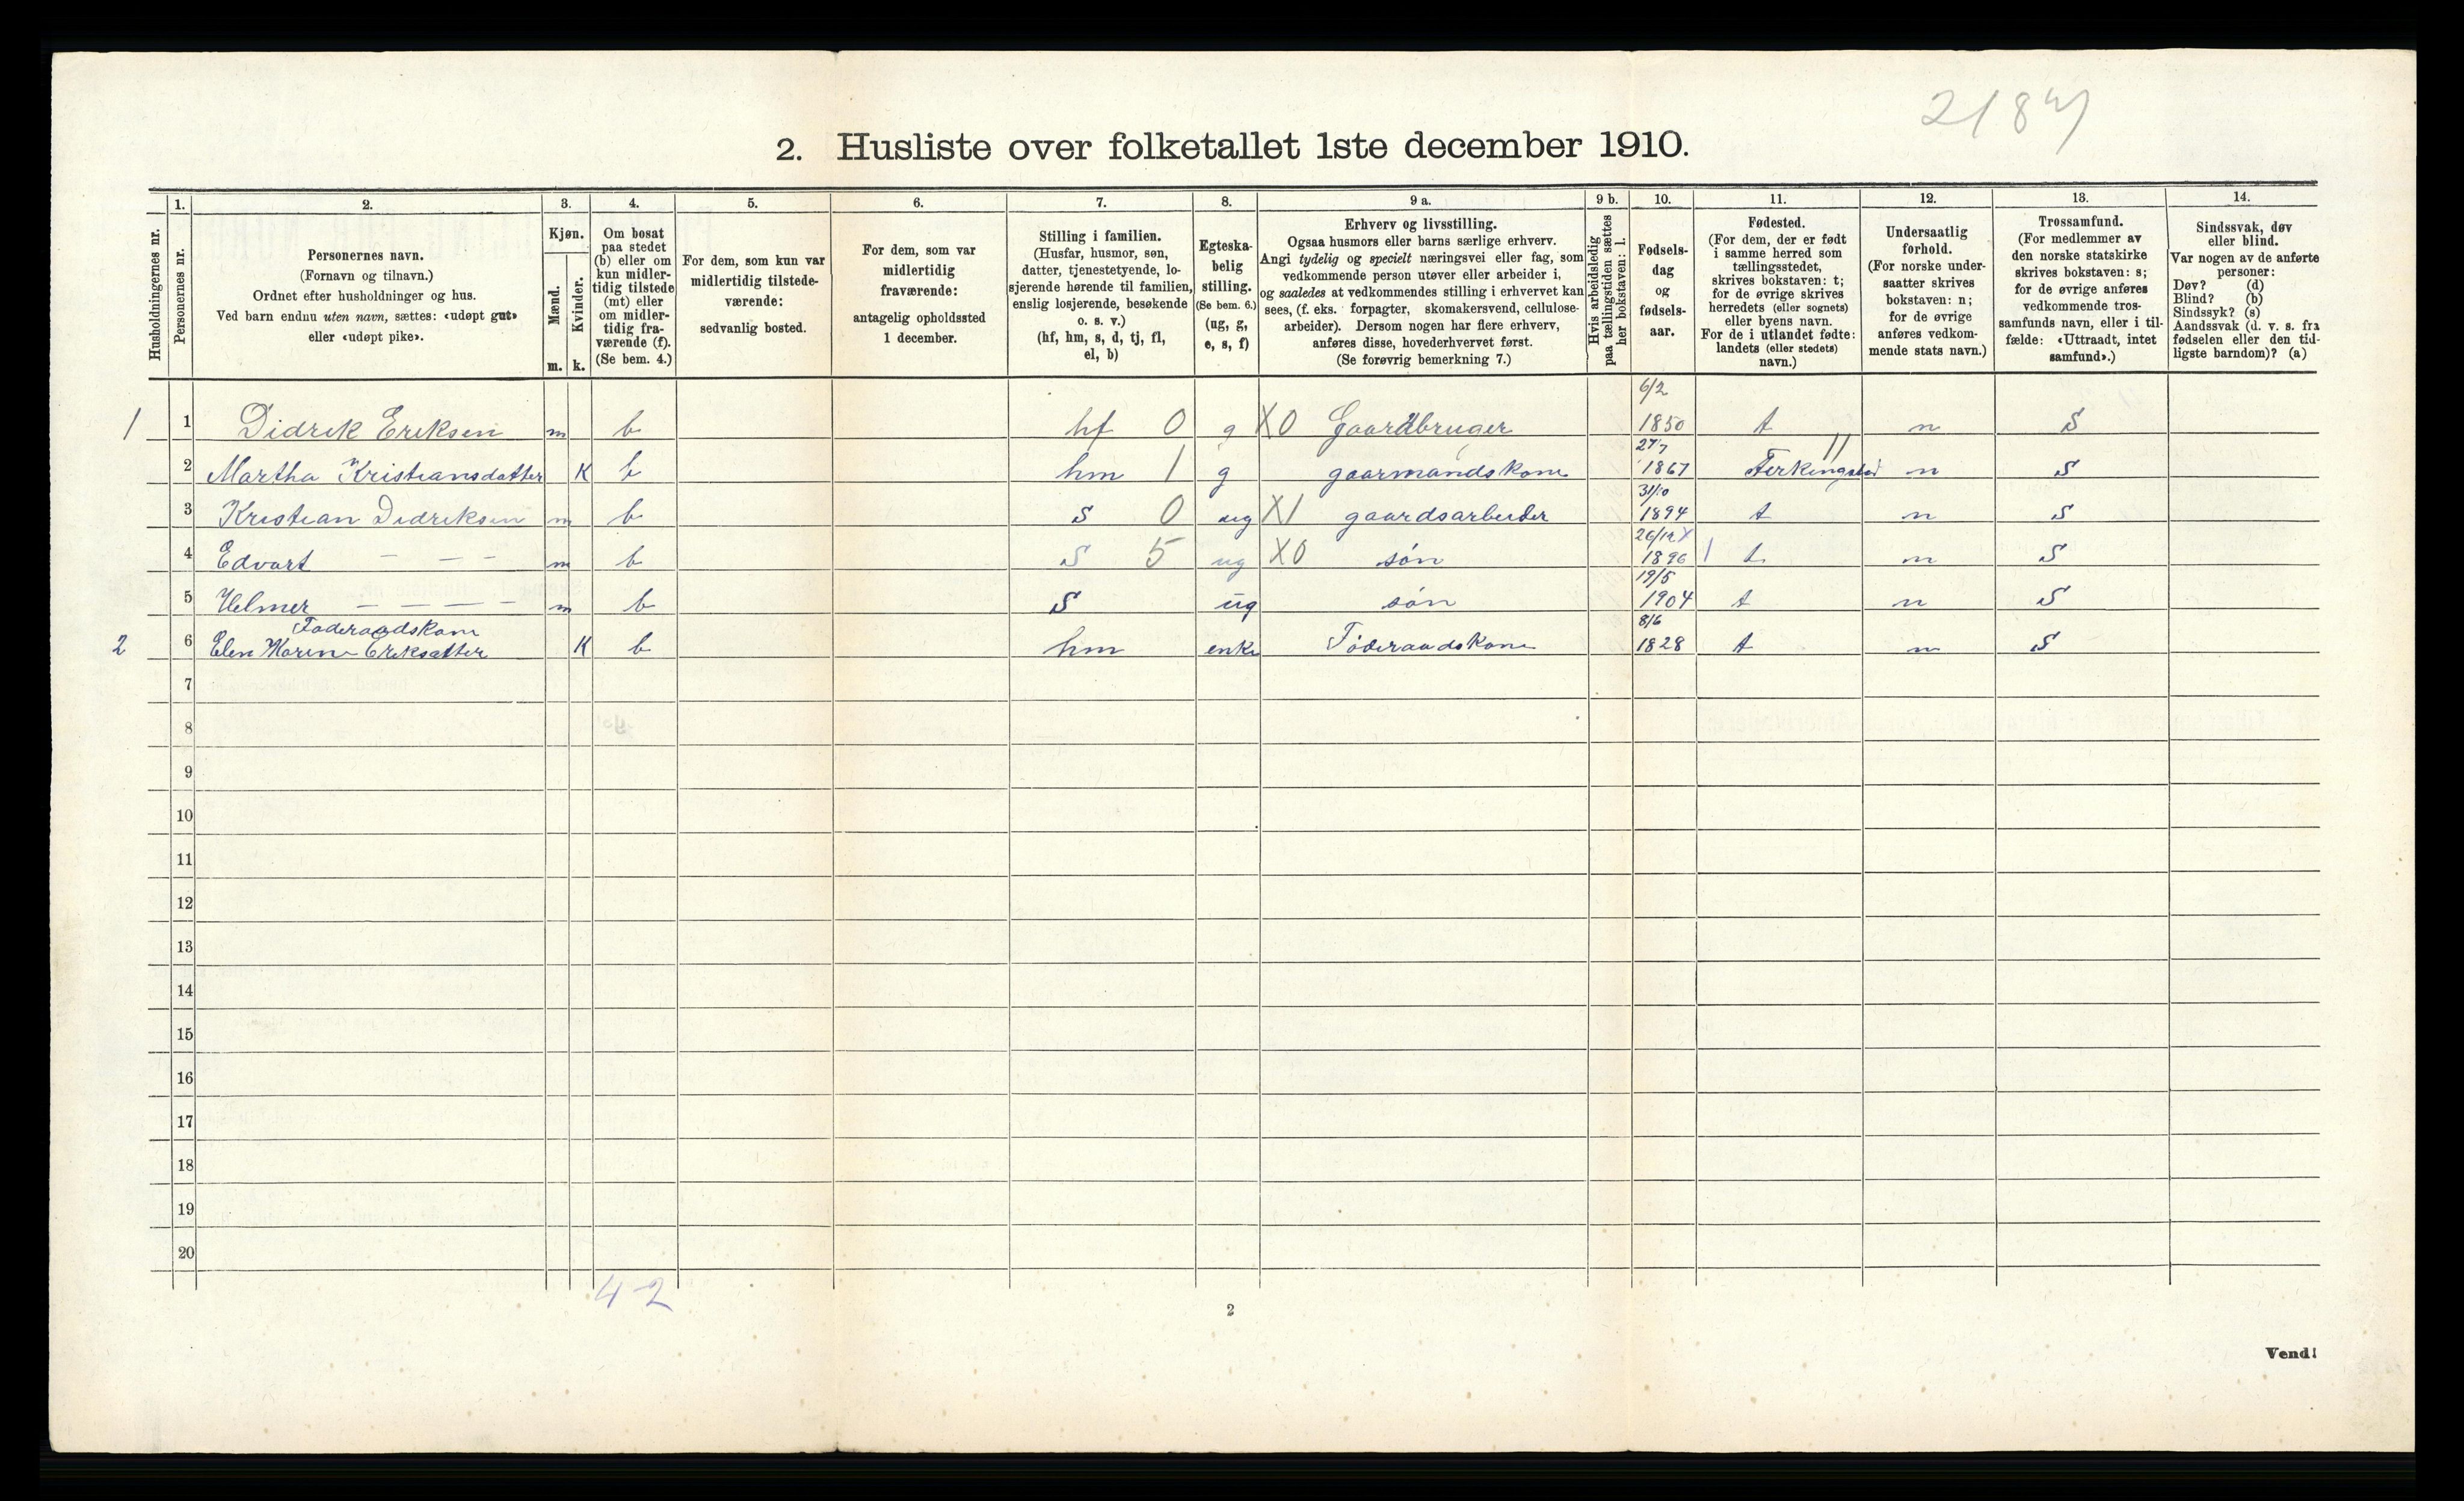 2187
2. Husliste over folketallet 1ste december 1910.
Husholdningernes nr.
1.
Personernes nr.
2.
Personernes navn.
(Fornavn og tilnavn.)
Ordnet efter husholdninger og hus.
Ved barn endnu uten navn, sættes: «udøpt gut»
eller «udøpt pike».
3.
Kjøn.
Mænd.
Kvinder.
m. k.
4.
Om bosat
paa stedet
(b) eller om
kun midler-
tidig tilstede
(mt) eller
om midler-
tidig fra-
værende (f).
(Se bem. 4.)
5.
For dem, som kun var
midlertidig tilstede-
værende:
sedvanlig bosted.
6.
For dem, som var
midlertidig
fraværende:
antagelig opholdssted
1 december.
7.
Stilling i familien.
(Husfar, husmor, søn,
datter, tjenestetyende, lo-
sjerende hørende til familien,
enslig losjerende, besøkende
o. s. v.)
(hf, hm, s, d, tj, fl,
el, b)
8.
Egteska-
belig
stilling.
(Se bem. 6.)
(ug, g,
e, s, f)
9 a.
Erhverv og livsstilling.
Ogsaa husmors eller barns særlige erhverv.
Angi tydelig og specielt næringsvei eller fag, som
vedkommende person utøver eller arbeider i,
og saaledes at vedkommendes stilling i erhvervet kan
sees, (f. eks. forpagter, skomakersvend, cellulose-
arbeider). Dersom nogen har flere erhverv,
anføres disse, hovederhvervet først.
(Se forøvrig bemerkning 7.)
9 b.
Hvis arbeidsledig
paa tællingstiden sættes
her bokstaven: l.
10.
Fødsels-
dag
og
fødsels-
aar.
11.
Fødested.
(For dem, der er født
i samme herred som
tællingsstedet,
skrives bokstaven: t;
for de øvrige skrives
herredets (eller sognets)
eller byens navn.
For de i utlandet fødte:
landets (eller stedets)
navn.)
12.
Undersaatlig
forhold.
(For norske under-
saatter skrives
bokstaven: n;
for de øvrige
anføres vedkom-
mende stats navn.)
13.
Trossamfund.
(For medlemmer av
den norske statskirke
skrives bokstaven: s;
for de øvrige anføres
vedkommende tros-
samfunds navn, eller i til-
fælde: «Uttraadt, intet
samfund».)
14.
Sindssvak, døv
eller blind.
Var nogen av de anførte
personer:
Døv? (d)
Blind? (b)
Sindssyk? (s)
Aandssvak (d. v. s. fra
fødselen eller den tid-
ligste barndom)? (a)
6/2
1 1 Didrik Eriksen m b hf 0 g X0 Gaardbruger 1850 t n S
27/7 11
2 Martha Kristiansdatter K b hm 1 g gaarmandskone 1867 Ferkingstad n S
31/10
3 Kristian Didriksen m b s 0 ug X1 gaardsarbeider 1894 t n S
26/12 X
4 Edvart — — — m b S 5 ug X0 søn 1896 1 t n S
19/5
5 Helmer — — — — m b S ug søn 1904 t n S
Føderaadskone 8/6
2 6 Elen Karine Eriksdatter K b hm enke Føderaadskone 1828 t n S
7
8
9
10
11
12
13
14
15
16
17
18
19
20
4-2
2
Vend!